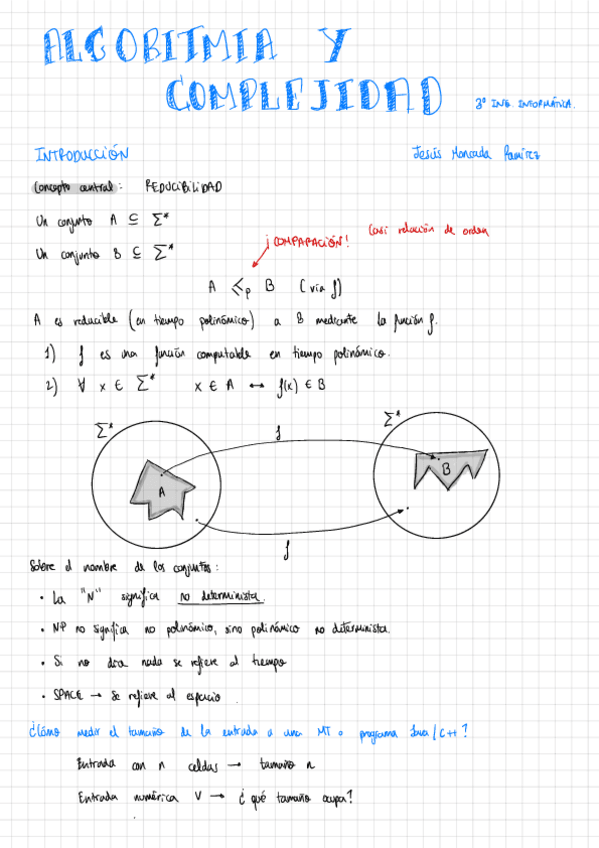 ALGORITMIA Y
COMPLEJIDAD
3º ING. INFORMÁTICA.
INTRODUCCIÓN
Jesús Moncada Ramírez
Concepto central: REDUCIBILIDAD
Un conjunto A ⊆ Σ*
Un conjunto B ⊆ Σ*
¡COMPARACIÓN!
Casi relación de orden
A ≤p B (vía f)
A es reducible (en tiempo polinómico) a B mediante la función f.
1) f es una función computable en tiempo polinómico.
2) ∀ x ∈ Σ* x ∈ A ↔ f(x) ∈ B
Σ*
f
Σ*
A
B
f
Sobre el nombre de los conjuntos:
• La "N" significa no determinista.
• NP no significa no polinómico, sino polinómico no determinista.
• Si no dice nada se refiere al tiempo
• SPACE → se refiere al espacio
¿Cómo medir el tamaño de la entrada a una MT o programa Java/C++?
Entrada con n celdas → tamaño n
Entrada numérica V → ¿qué tamaño ocupa?